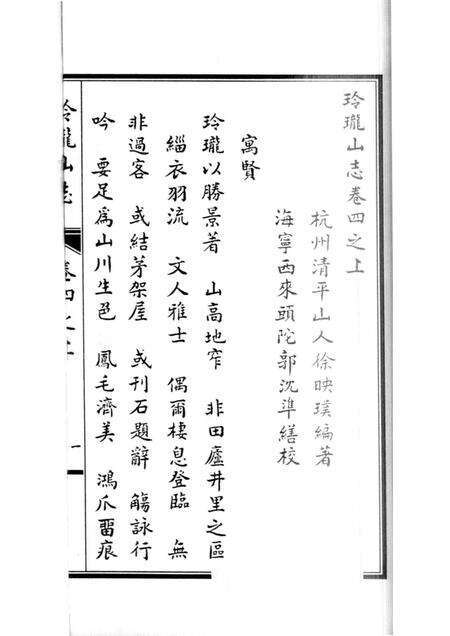 玲瓏山志卷四之上
杭州清平山人徐映璞編著
海寧西來頭陀郭沈準繕校
寓賢
玲瓏以勝景著 山高地窄 非田廬井里之區
緇衣羽流 文人雅士 偶爾棲息登臨 無
非過客 或結茅架屋 或刊石題辭 觴詠行
吟 要足為山川生色 鳳毛濟美 鴻爪畱痕
玲瓏山志 卷四之上 一